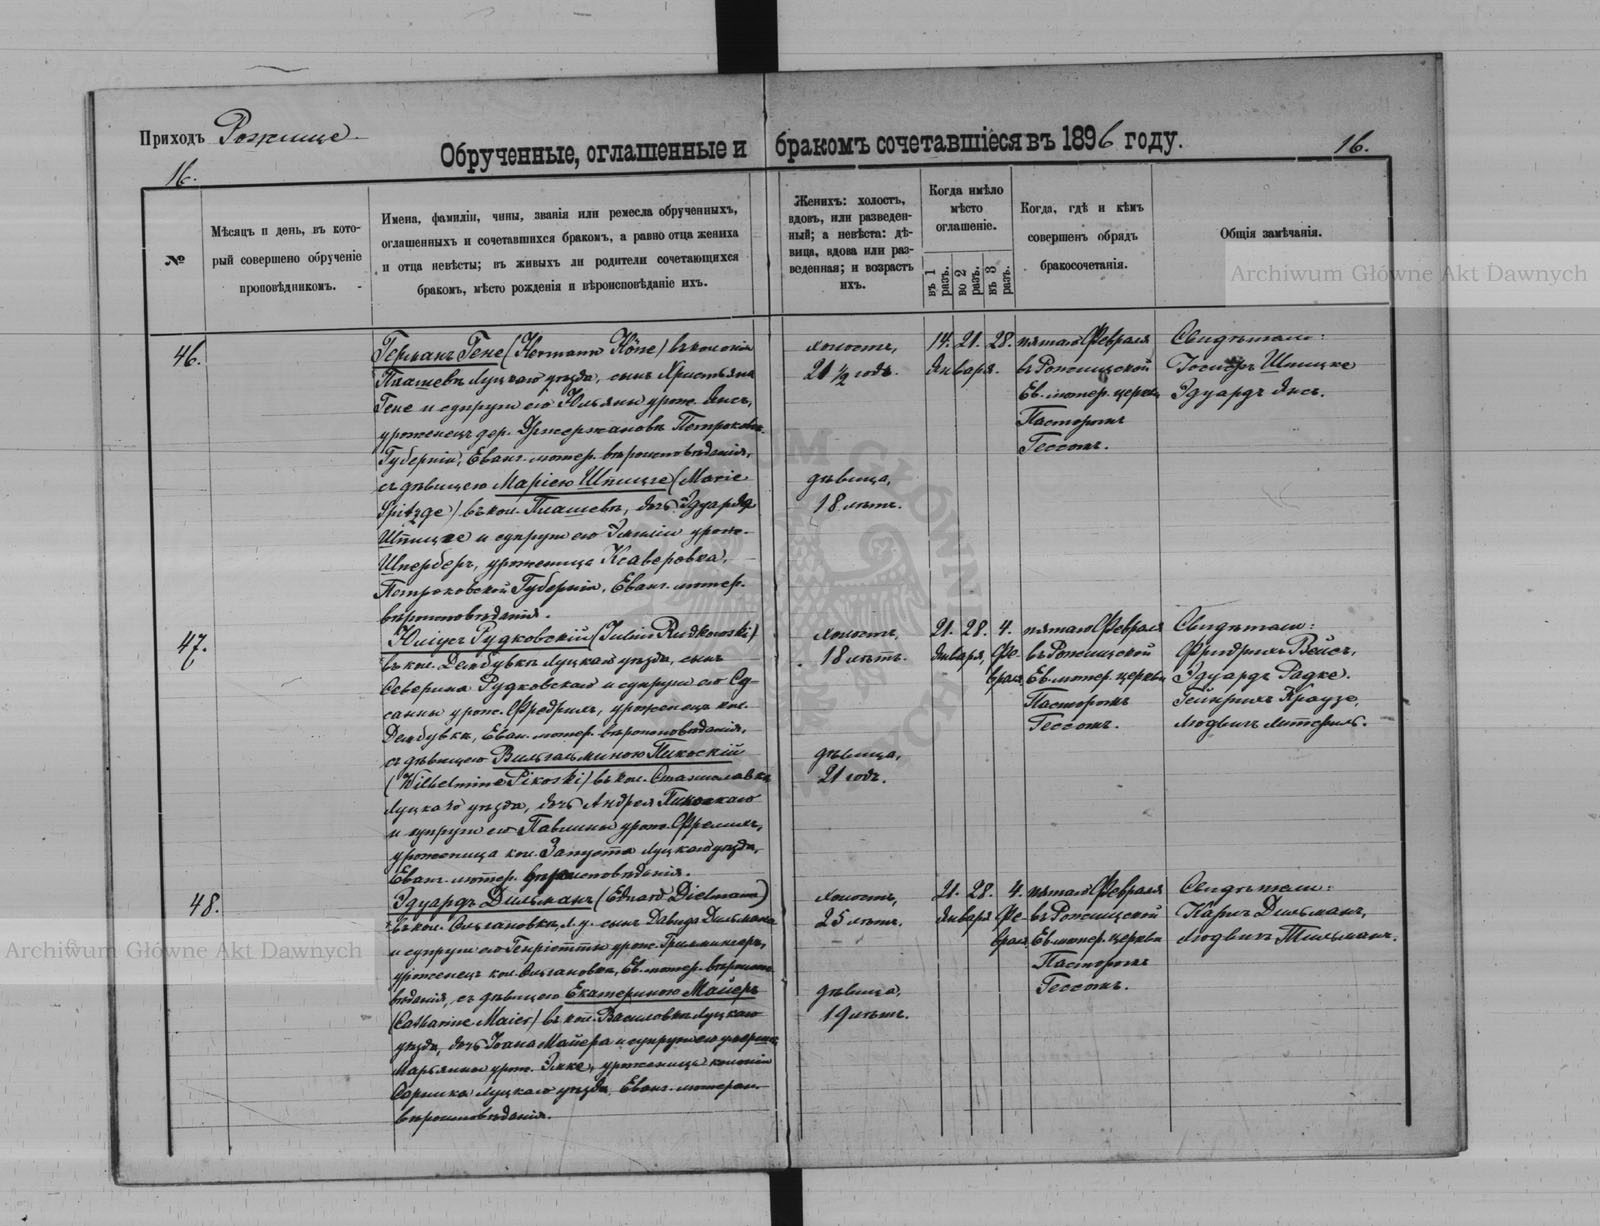 Приходъ Рожище
Обрученные, оглашенные и бракомъ сочетавшіеся въ 1896 году.
16.
16.
№
Мѣсяцъ и день, въ кото-
рый совершено обрученіе
проповѣдникомъ.
Имена, фамиліи, чины, званія или ремесла обрученныхъ,
оглашенныхъ и сочетавшихся бракомъ, а равно отца жениха
и отца невѣсты; въ живыхъ ли родители сочетающихся
бракомъ, мѣсто рожденія и вѣроисповѣданіе ихъ.
Женихъ: холостъ,
вдовъ, или разведен-
ный; а невѣста: дѣ-
вица, вдова или раз-
веденная; и возрастъ
ихъ.
Когда имѣло
мѣсто
оглашеніе.
въ 1 разъ.
во 2 разъ.
въ 3 разъ.
Когда, гдѣ и кѣмъ
совершенъ обрядъ
бракосочетанія.
Общія замѣчанія.
46.
Германъ Гене (Hermann Höne) въ колоніи
Пляшевъ Луцкаго уѣзда, сынъ Христьяна
Гене и супруги его Юльяны урож. Янсъ,
уроженецъ дер. Држержановъ Петроков.
Губерніи, Еванг. лютер. вѣроисповѣданія,
съ дѣвицею Маріею Шпицге (Marie
Spitzge) въ кол. Пляшевъ, дочь Эдуарда
Шпицге и супруги его Эмиліи урож.
Шперберъ, уроженица Ксаверовка,
Петроковской Губерніи, Еванг. лютер.
вѣроисповѣданія.
холостъ,
21 1/2 годъ.
дѣвица,
18 лѣтъ.
14. 21. 28.
Января.
пятаго Февраля
въ Рожищской
Ев. лютер. церкви
Пасторомъ
Гессомъ.
Свидѣтели:
Шпицке
Эдуардъ Янсъ.
47.
Юліусъ Рудковскій (Julius Rudkowski)
въ кол. Дембувка Луцкаго уѣзда, сынъ
Северина Рудковскаго и супруги его Су-
санны урож. Фредрихъ, уроженецъ кол.
Дембувка, Еван. лютер. вѣроисповѣданія,
съ дѣвицею Вильгельминою Пикоскій
(Wilhelmine Pikoski) въ кол. Станиславка
Луцкаго уѣзда, дочь Андрея Пикоскаго
и супруги его Павлины урож.
уроженица кол. Запуста Луцкаго уѣзда,
Еванг. лютер. вѣроисповѣданія.
холостъ,
18 лѣтъ.
дѣвица,
21 годъ.
21. 28. 4.
Января, Фе-
враля
пятаго Февраля
въ Рожищской
Ев. лютер. церкви
Пасторомъ
Гессомъ.
Свидѣтели:
Фридрихъ Вейсъ,
Эдуардъ Радке.
Гейнрихъ Краузе,
Людвигъ
48.
Эдуардъ Дильманъ (Eduard Dielmann)
въ кол. Ольгановка, Л. у. сынъ Давида Дильмана
и супруги его Генріетты урож.
уроженецъ кол. Ольгановка, Ев. лютер. вѣроиспо-
вѣданія, съ дѣвицею Екатериною Майеръ
(Catharine Maier) въ кол. Василовка Луцкаго
уѣзда, дочь Іоана Майера и супруги его умершей
Марьянны урож. уроженица колоніи
Луцкаго уѣзда, Еванг. лютеран.
вѣроисповѣданія.
холостъ,
25 лѣтъ.
дѣвица,
19 лѣтъ.
21. 28. 4.
Января Фе-
враля
пятаго Февраля
въ Рожищской
Ев. лютер. церкви
Пасторомъ
Гессомъ.
Свидѣтели:
Карлъ Дильманъ,
Людвигъ Тильманъ.
Archiwum Główne Akt Dawnych
Archiwum Główne Akt Dawnych